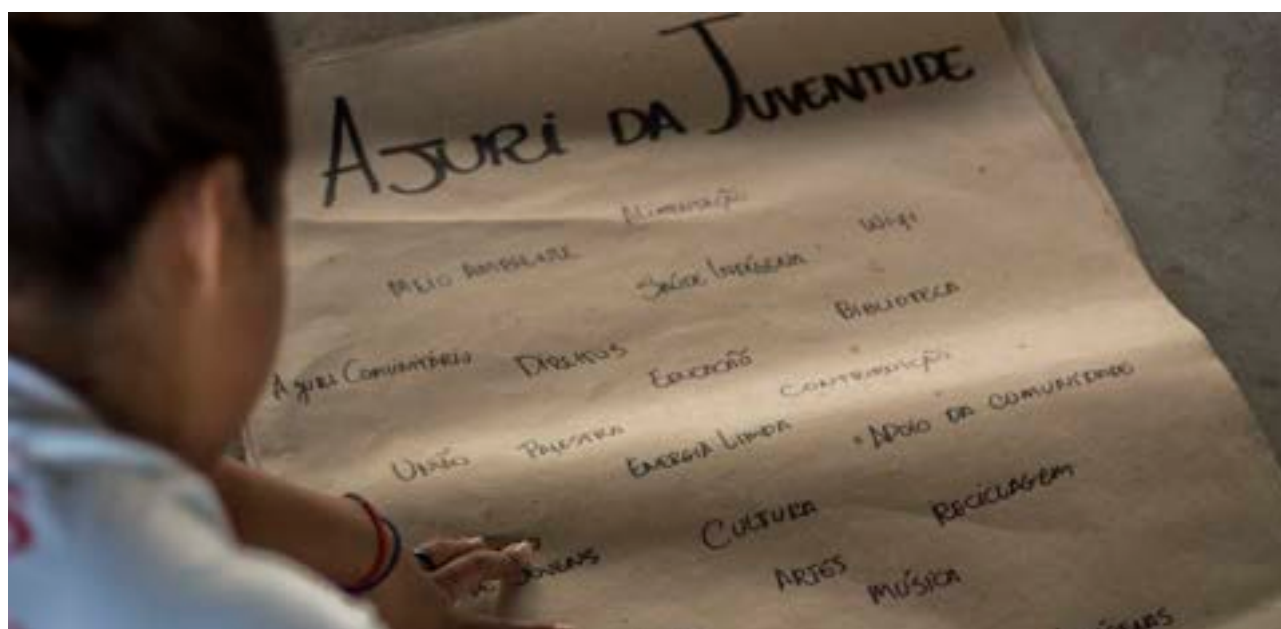 AJURI DA JUVENTUDE
ALIMENTAÇÃO
MEIO AMBIENTE
SAÚDE INDÍGENA
WIFI
BIBLIOTECA
AJURI COMUNITÁRIO
DIREITOS
EDUCAÇÃO
CONTRIBUIÇÃO
UNIÃO
PALESTRA
ENERGIA LIMPA
APOIO DA COMUNIDADE
JOVENS
CULTURA
RECICLAGEM
ARTES
MÚSICA